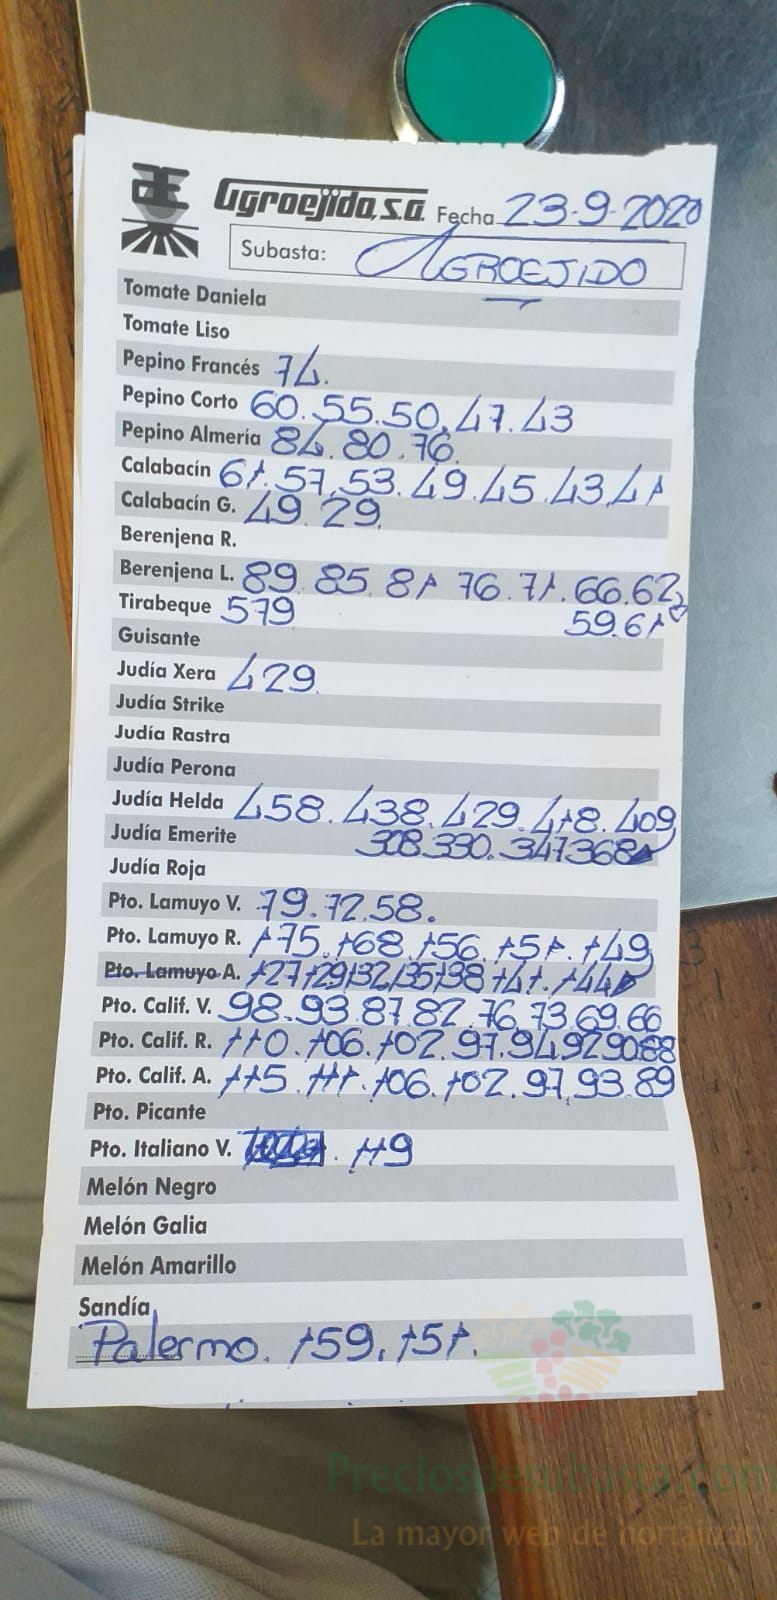 Agroejido, S.A. Fecha 23-9-2020
Subasta: AGROEJIDO
Tomate Daniela
Tomate Liso
Pepino Francés 74.
Pepino Corto 60.55.50.47.43
Pepino Almería 84.80.76.
Calabacín 61.57.53.49.45.43.41
Calabacín G. 49.29
Berenjena R.
Berenjena L. 89.85.81 76.71.66.62
Tirabeque 579 59.61
Guisante
Judía Xera 429
Judía Strike
Judía Rastra
Judía Perona
Judía Helda 458.438.429.418.409
Judía Emerite 308.330.347368
Judía Roja
Pto. Lamuyo V. 79.72.58.
Pto. Lamuyo R. 175.168.156.151.149
Pto. Lamuyo A. 127129132135138 141.144
Pto. Calif. V. 98.93.87.82.76.73.69.66
Pto. Calif. R. 110.106.102.97.94929088
Pto. Calif. A. 115.111.106.102.97.93.89
Pto. Picante
Pto. Italiano V. 119
Melón Negro
Melón Galia
Melón Amarillo
Sandía
Palermo. 159.151.
Preciosdesubasta.com
La mayor web de hortalizas